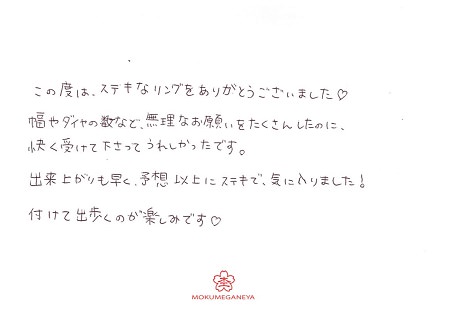 この度は、ステキなリングをありがとうございました♡
幅やダイヤの数など、無理なお願いをたくさんしたのに、
快く受けて下さってうれしかったです。
出来上がりも早く、予想以上にステキで、気に入りました!
付けて出歩くのが楽しみです♡
MOKUMEGANEYA